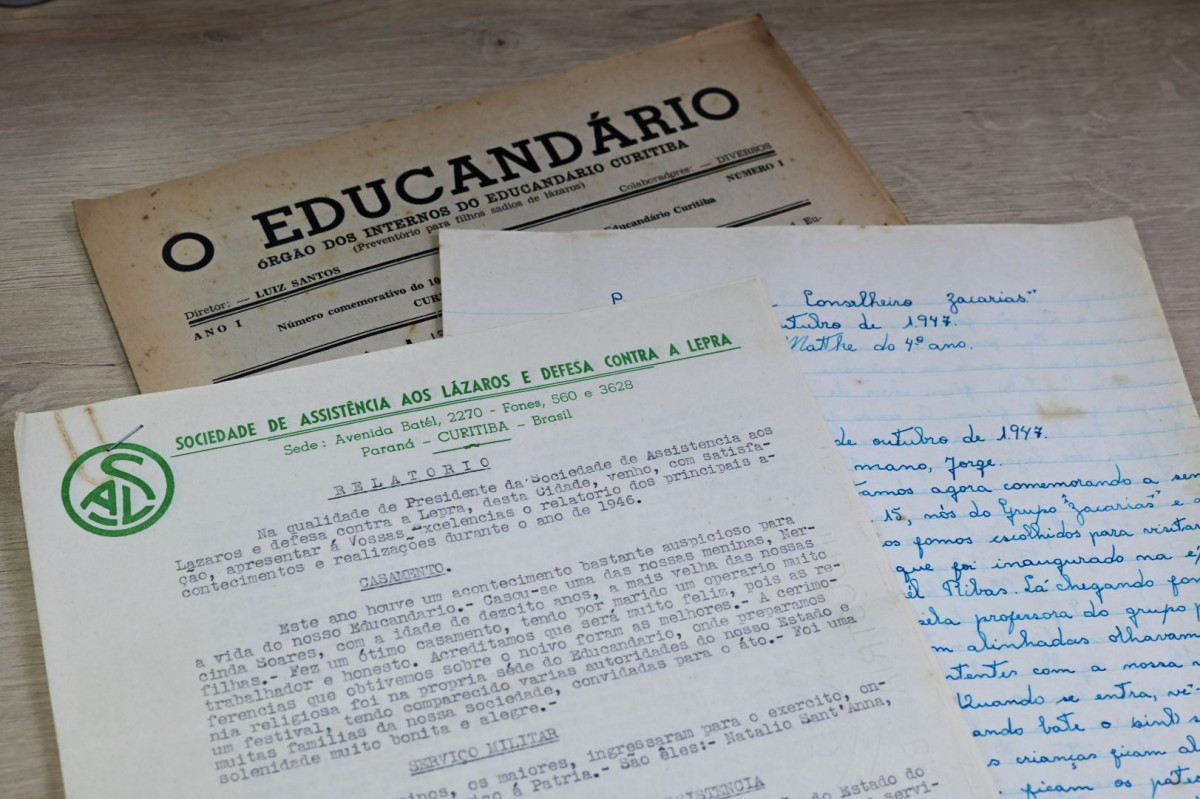 O EDUCANDÁRIO
ÓRGÃO DOS INTERNOS DO EDUCANDARIO CURITIBA
(Preventório para filhos sadios de lázaros)
Diretor: — LUIZ SANTOS
Colaboradores: — DIVERSOS
ANO I
Número comemorativo do
Educandário Curitiba
NÚMERO 1
Conselheiro Zacarias"
outubro de 1947.
Matthe do 4º ano.
de outubro de 1947.
mano, Jorge.
tamos agora comemorando a sem
15, nós do Grupo "Zacarias" e
os fomos escolhidos para visita
que foi inaugurado na
el Ribas. Lá chegando fo
pela professora do grupo
m alinhadas olhavam
ntentes com a nossa
Quando se entra, vê-
ando bate o sino
s crianças ficam
ficam os
SAL
SOCIEDADE DE ASSISTÊNCIA AOS LÁZAROS E DEFESA CONTRA A LEPRA
Sede: Avenida Batél, 2270 - Fones, 560 e 3628
Paraná - CURITIBA - Brasil
RELATORIO
Na qualidade de Presidente da Sociedade de Assistencia aos
Lazaros e defesa contra a Lepra, desta Cidade, venho, com satisfa-
ção, apresentar á Vossas Excelencias o relatorio dos principais a-
contecimentos e realizações durante o ano de 1946.
CASAMENTO.
Este ano houve um acontecimento bastante auspicioso para
a vida do nosso Educandario.- Casou-se uma das nossas meninas, Ner-
cinda Soares, com a idade de dezoito anos, a mais velha das nossas
filhas.- Fez um ótimo casamento, tendo por marido um operario muito
trabalhador e honesto. Acreditamos que será muito feliz, pois as re-
ferencias que obtivemos sobre o noivo foram as melhores.- A cerimo-
nia religiosa foi na propria séde do Educandario, onde preparamos
um festival, tendo comparecido varias autoridades do nosso Estado e
muitas familias da nossa sociedade, convidadas para o áto.- Foi uma
solenidade muito bonita e alegre.-
SERVIÇO MILITAR
os maiores, ingressaram para o exercito, on-
á Patria.- São êles:- Natalio Sant'Anna,
ISTENCIA
do Estado do
servi-